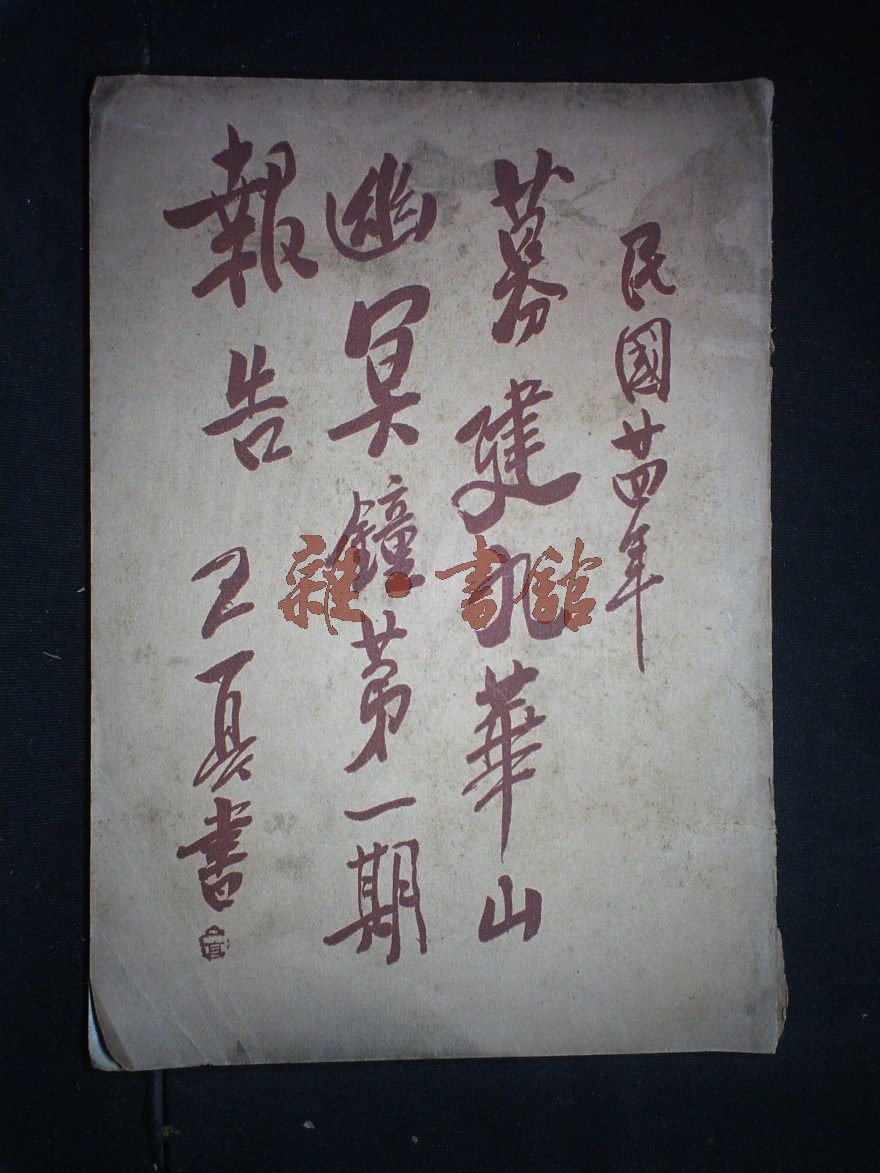 民國廿四年
募建九華山
幽冥鐘第一期
報告 書
雜·書館